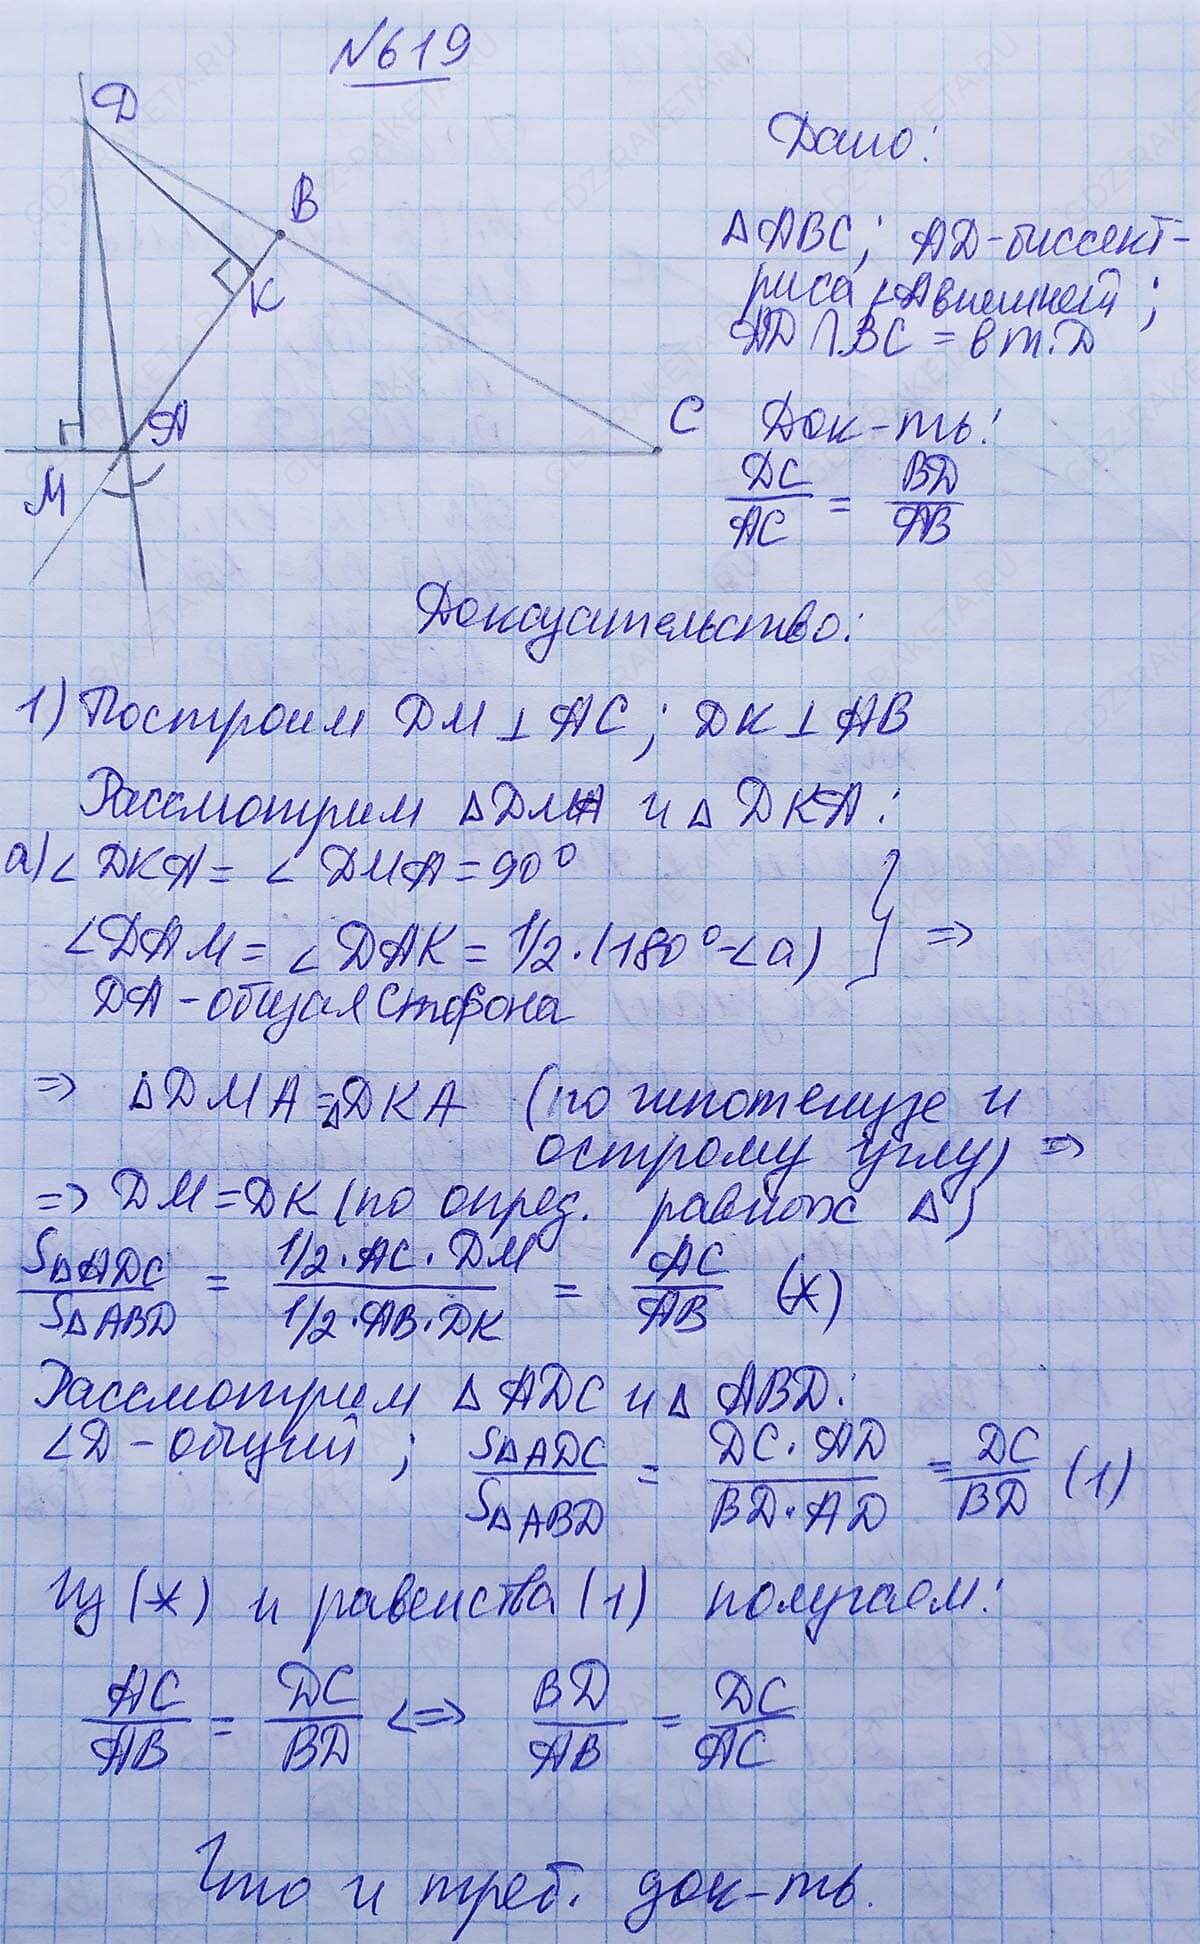 №619
D
B
K
A
C
M
Дано:
△ABC; AD-биссект-
риса ∠A внешней;
AD∩BC = в т. D
Док-ть:
DC/AC = BD/AB
Доказательство:
1) Построим DM⊥AC; DK⊥AB
Рассмотрим △DMA и △DKA:
а) ∠DKA = ∠DMA = 90°
∠DAM = ∠DAK = 1/2·(180°-∠a) } =>
DA - общая сторона
=> △DMA = △DKA (по гипотенузе и
острому углу) =>
=> DM = DK (по опред. равных △)
S△ADC/S△ABD = 1/2·AC·DM/1/2·AB·DK = AC/AB (*)
Рассмотрим △ADC и △ABD:
∠D - общий; S△ADC/S△ABD = DC·AD/BD·AD = DC/BD (1)
Из (*) и равенства (1) получаем:
AC/AB = DC/BD <=> BD/AB = DC/AC
Что и треб. док-ть.